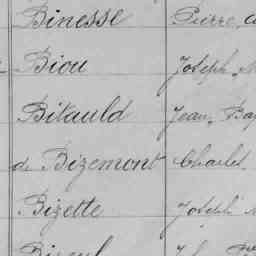 Binesse Pierre
Biou Joseph
Bitauld Jean Bap
de Bizemont Charles
Bizette Joseph